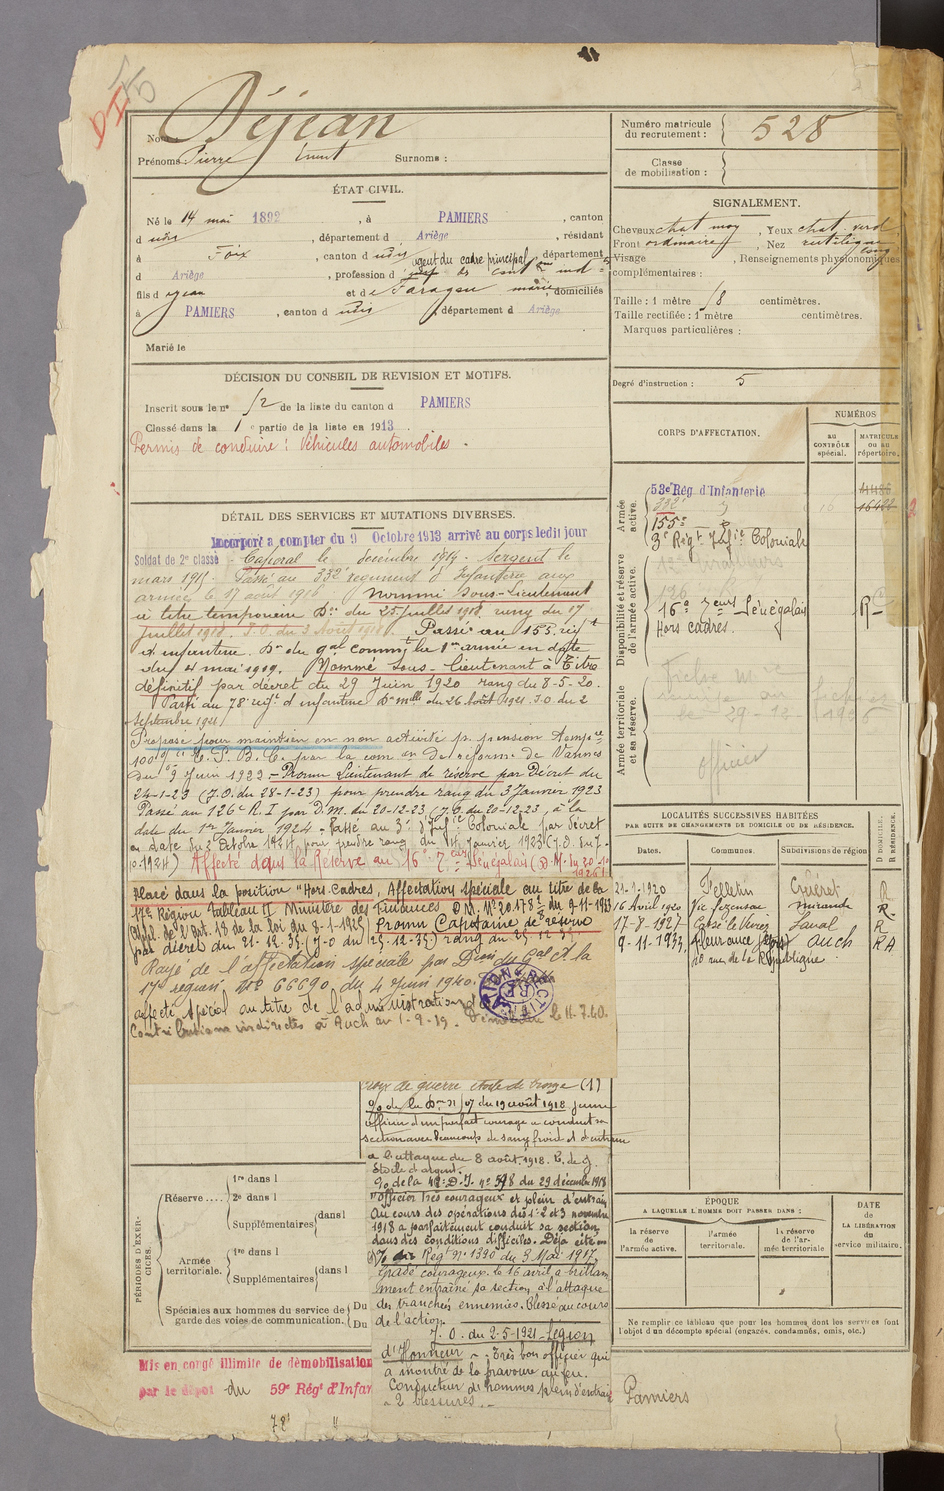 Nom Déjean
Numéro matricule du recrutement : 528
Prénoms Pierre Ernest Surnoms :
Classe de mobilisation :
ÉTAT CIVIL.
Né le 14 mai 1893, à PAMIERS, canton
d udis, département d Ariège, résidant
à Foix, canton d udis, département
d Ariège, profession d agent du cadre principal des cont ind
fils d et de domiciliés
à PAMIERS, canton d udis, département d Ariège
Marié le
SIGNALEMENT.
Cheveux chat moy, Yeux chat verd
Front ordinaire, Nez rectiligne
Visage long, Renseignements physionomiques
complémentaires :
Taille : 1 mètre 78 centimètres.
Taille rectifiée : 1 mètre centimètres.
Marques particulières :
Degré d'instruction : 5
DÉCISION DU CONSEIL DE REVISION ET MOTIFS.
Inscrit sous le n° 12 de la liste du canton d PAMIERS
Classé dans la 1e partie de la liste en 1913.
Permis de conduire : Véhicules automobiles.
DÉTAIL DES SERVICES ET MUTATIONS DIVERSES.
Incorporé à compter du 9 Octobre 1913 arrivé au corps ledit jour
Soldat de 2e classe - Caporal le décembre 1914. Sergent le
mars 1915. Passé au 332e régiment d'Infanterie aux
armées le 17 août 1916. Nommé Sous-Lieutenant
à titre temporaire Don du 25 Juillet 1918 rang du 17
Juillet 1918. J.O. du 3 Août 1918. Passé au 155 régt
d'infanterie. Don du gal commt la 1re armée en date
du 4 mai 1919. Nommé Sous-Lieutenant à Titre
définitif par décret du 29 Juin 1920 rang du 8-5-20.
Passé au 78e régt d'infanterie Don mlle du 26 août 1921 J.O. du 2
Septembre 1921
Proposé pour maintien en non activité p. pension tempre
100% E.P.B.C. par la com on de réforme de Vannes
du 9 Juin 1922. - Promu Lieutenant de réserve par Décret du
24-1-23 (J.O. du 28-1-23) pour prendre rang du 3 Janvier 1923
Passé au 126e R.I. par D.M. du 20-12-23 (J.O. du 20-12-23, à la
date du 1er Janvier 1924. Passé au 3e d'Infie Coloniale par décret
en date du 2 Octobre 1924 pour prendre rang du Janvier 1923 (J.O. du 7-
10-1924) Affecté dans la Réserve au 16e Sénégalais (D.M. du 20-1-
1926)
Placé dans la position "Hors Cadres, Affectation spéciale au titre de la
17e Région Tableau II Ministère des Finances D.M. N° 20.178 du 9-11-1933
Appl. de l'Art. 18 de la loi du 8-1-1925) Promu Capitaine de Réserve
par décret du 21-12-35 (J.O du 25-12-35) rang du 25-12-35
Rayé de l'affectation spéciale par Don du Gal Ct la
17e région, N° 66690, du 4 Juin 1940.
affecté spécial au titre de l'administration des
Contributions indirectes à Auch au 1-9-39. Démobilisé le 11-7-40.
CORPS D'AFFECTATION.
NUMÉROS
au contrôle spécial.
matricule ou au répertoire.
Armée active.
53e Rég. d'Infanterie
332e
155e
3e Régt Infie Coloniale
Disponibilité et réserve de l'armée active.
126
16e Sénégalais
Hors cadres.
R
Armée territoriale et sa réserve.
29-12-1926
officier
LOCALITÉS SUCCESSIVES HABITÉES
PAR SUITE DE CHANGEMENTS DE DOMICILE OU DE RÉSIDENCE.
Dates. Communes. Subdivisions de région
D DOMICILE. R RÉSIDENCE.
21-1-1920 Felletin Guéret R
16 Avril 1920 Vic Fezensac Mirande R
17-8-1927 Laval R
9-11-1933 Fleurance (Gers) Auch RA
10 rue de la République
Croix de guerre étoile de bronze (1)
officier d'un parfait courage a conduit sa
section avec beaucoup de sang froid et d'entrain
à l'attaque du 8 août 1918. C. de G.
Etoile d'argent.
"Officier très courageux et plein d'entrain
Au cours des opérations des 1. 2 et 3 novembre
1918 a parfaitement conduit sa section
dans des conditions difficiles. Déjà cité"
Regt N° 1390 du 3 Mai 1917
Gradé courageux. le 16 avril a brillam-
ment entraîné sa section à l'attaque
des tranchées ennemies. Blessé au cours
de l'action.
J.O. du 2-5-1921 - Légion
d'Honneur - Très bon officier qui
a montré de la bravoure au feu.
Conducteur d'hommes plein d'entrain
2 blessures.
PÉRIODES D'EXERCICES.
Réserve....
1re dans l
2e dans l
Supplémentaires dans l
Armée territoriale.
1re dans l
Supplémentaires dans l
Spéciales aux hommes du service de garde des voies de communication. Du Du
ÉPOQUE
A LAQUELLE L'HOMME DOIT PASSER DANS :
la réserve de l'armée active.
l'armée territoriale.
la réserve de l'armée territoriale
DATE DE LA LIBÉRATION du service militaire.
Ne remplir ce tableau que pour les hommes dont les services font
l'objet d'un décompte spécial (engagés, condamnés, omis, etc.)
Mis en congé illimité de démobilisation
par le dépôt du 59e Régt d'Infan
78e "
Pamiers